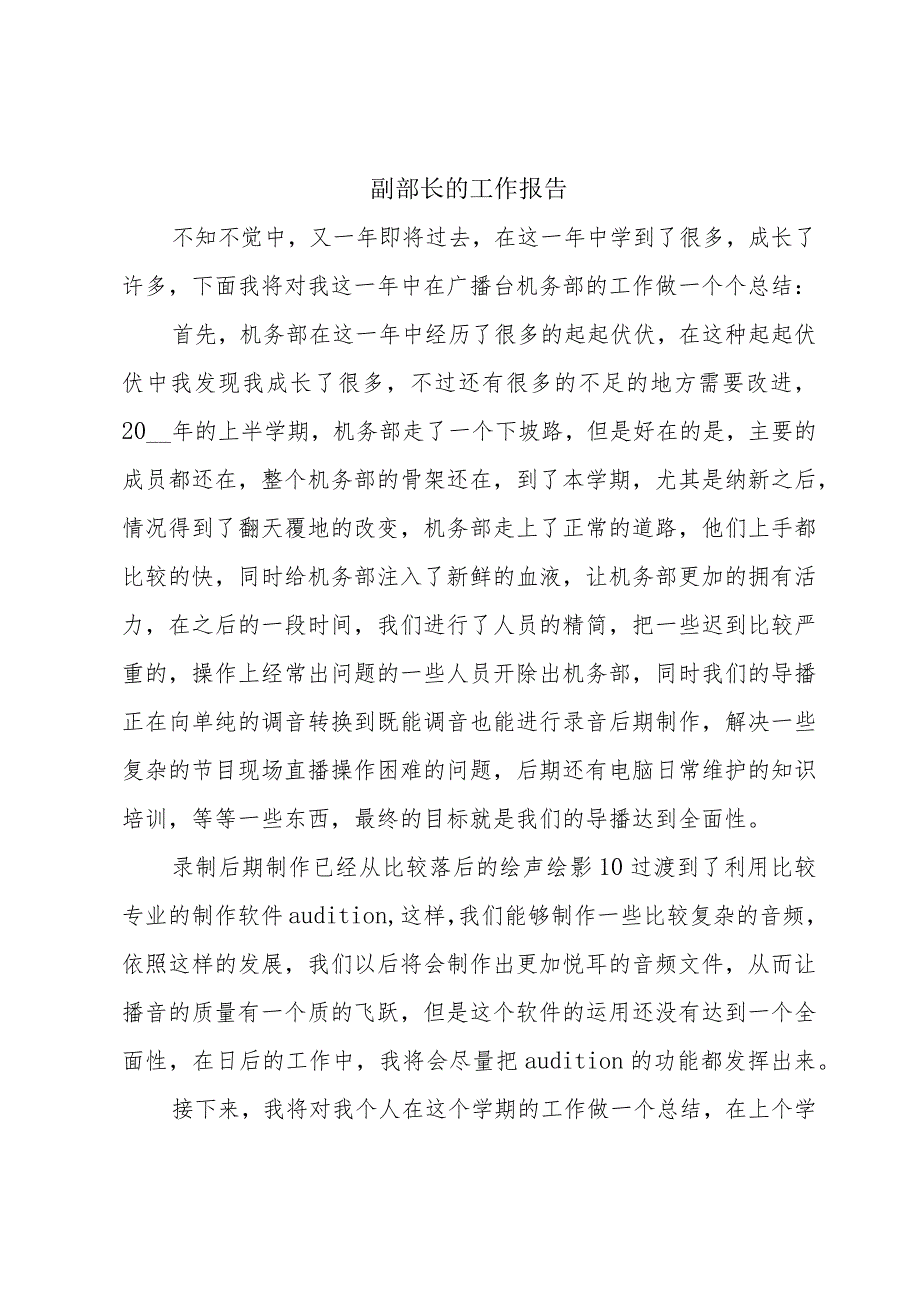 副部长的工作报告
不知不觉中，又一年即将过去，在这一年中学到了很多，成长了
许多，下面我将对我这一年中在广播台机务部的工作做一个个总结：
首先，机务部在这一年中经历了很多的起起伏伏，在这种起起伏
伏中我发现我成长了很多，不过还有很多的不足的地方需要改进，
20__年的上半学期，机务部走了一个下坡路，但是好在的是，主要的
成员都还在，整个机务部的骨架还在，到了本学期，尤其是纳新之后，
情况得到了翻天覆地的改变，机务部走上了正常的道路，他们上手都
比较的快，同时给机务部注入了新鲜的血液，让机务部更加的拥有活
力，在之后的一段时间，我们进行了人员的精简，把一些迟到比较严
重的，操作上经常出问题的一些人员开除出机务部，同时我们的导播
正在向单纯的调音转换到既能调音也能进行录音后期制作，解决一些
复杂的节目现场直播操作困难的问题，后期还有电脑日常维护的知识
培训，等等一些东西，最终的目标就是我们的导播达到全面性。
录制后期制作已经从比较落后的绘声绘影10过渡到了利用比较
专业的制作软件audition,这样，我们能够制作一些比较复杂的音频，
依照这样的发展，我们以后将会制作出更加悦耳的音频文件，从而让
播音的质量有一个质的飞跃，但是这个软件的运用还没有达到一个全
面性，在日后的工作中，我将会尽量把audition的功能都发挥出来。
接下来，我将对我个人在这个学期的工作做一个总结，在上个学